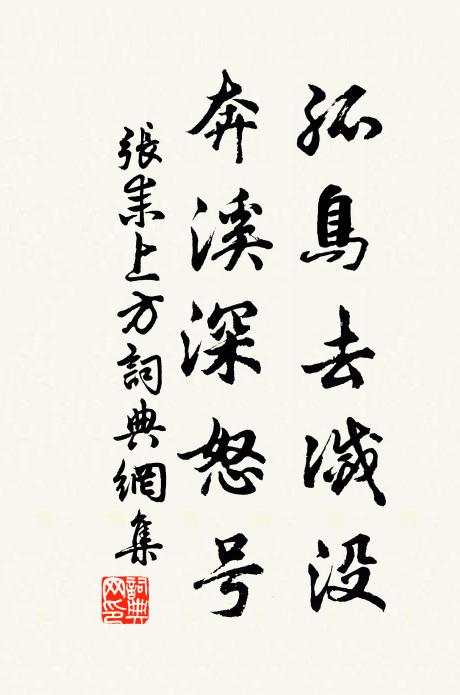 孤鳥去滅没
奔溪深怒号
張耒上方詞典網集
詞典网印